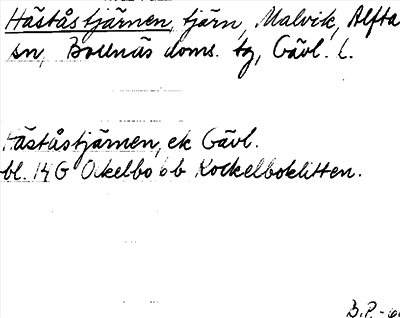 Häståstjärnen, tjärn, Malvik, Alfta
sn, Bollnäs doms. tg, Gävl. l.
Häståstjärnen, ek Gävl.
bl. 14 G Ockelbo ob Kockelboklitten.
B.P.